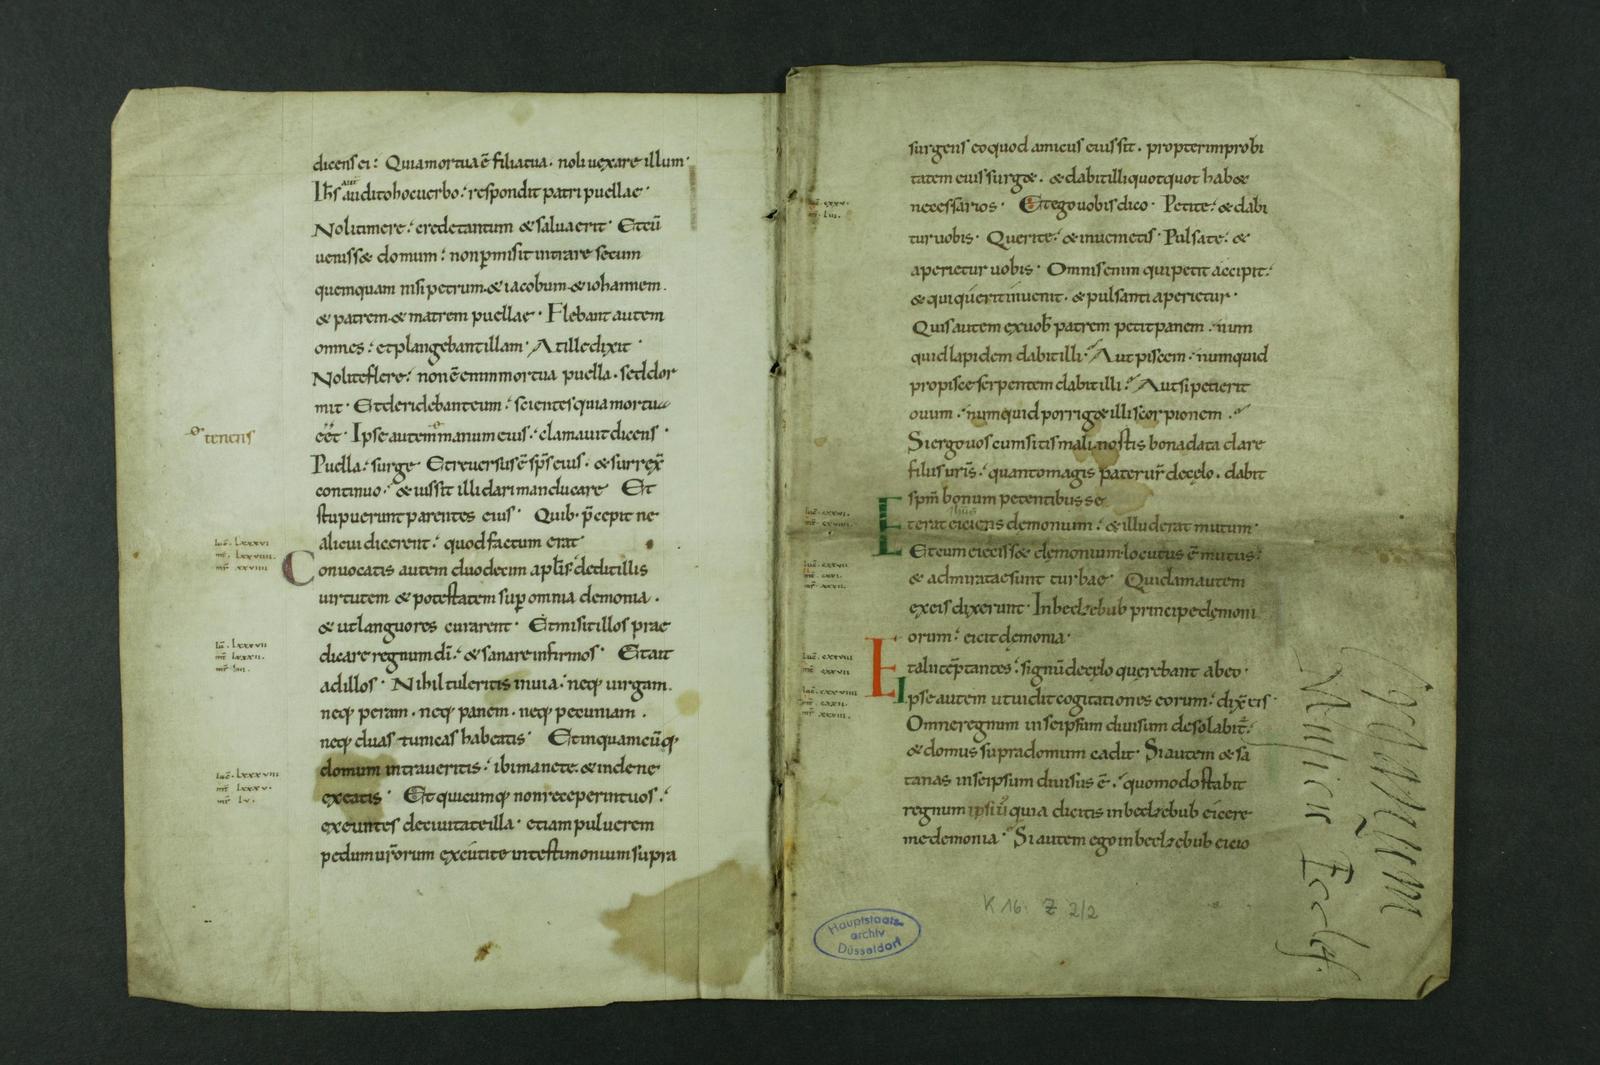 dicens ei: Quia mortua ē filia tua. noli uexare illum·
Ih̄s aut̄ audito hoc uerbo: respondit patri puellae·
Noli timere: crede tantum & salua erit· Et cū
ueniss& domum: non p̄misit intrare secum
quemquam nisi petrum. & iacobum. & iohannem.
& patrem. & matrem puellae· Flebant autem
omnes: et plangebant illam· At ille dixit·
Nolite flere: non ē enim mortua puella. sed dor
mit· Et deridebant eum: scientes quia mortua
tenens
eēt· Ipse autem manum eius: clamauit dicens·
Puella: surge· Et reuersus ē sp̄s eius. & surrex̄
continuo. & iussit illi dari manducare· Et
stupuerunt parentes eius· Quib· p̄cepit ne
alicui dicerent: quod factum erat·
luc̄. lxxxvi
mt̄. lxxviiii.
mr̄. xxviiii
Conuocatis autem duodecim apl̄is dedit illis
uirtutem & potestatem sup omnia demonia.
& ut languores curarent· Et misit illos prae
luc̄. lxxxvii
mt̄. lxxxii.
mr̄. liii.
dicare regnum dī: & sanare infirmos· Et ait
ad illos· Nihil tuleritis in uia: neq; uirgam.
neq; peram. neq; panem. neq; pecuniam.
neq; duas tunicas habeatis· Et in quamcūq;
luc̄. lxxxviii
mt̄. lxxxv.
mr̄. lv.
domum intraueritis: ibi manete. & inde ne
exeatis· Et quicumq; non receperint uos:
exeuntes de ciuitate illa· etiam puluerem
pedum ur̄orum excutite in testimonium supra
surgens eo quod amicus eius sit. propter improbi
tatem eius surg&. & dabit illi quotquot hab&
necessarios· Et ego uobis dico· Petite: & dabi
tur uobis· Querite: & inuenietis· Pulsate: &
aperietur uobis· Omnis enim qui petit accipit:
& qui querit inuenit. & pulsanti aperietur·
Quis autem ex uob̄ patrem petit panem. num
quid lapidem dabit illi· Aut piscem. numquid
pro pisce serpentem dabit illi: Aut si petierit
ouum. numquid porrig& illi scorpionem.
Si ergo uos cum sitis mali. nostis bona data dare
filiis ur̄is: quanto magis pater ur̄ de cęlo. dabit
sp̄m bonum petentibus se
luc̄. cxxvi.
Et erat eiciens demonium: & illud erat mutum·
Et cum eieciss& demonium. locutus ē mutus:
luc̄. cxxvii
& admiratae sunt turbae· Quidam autem
ex eis dixerunt· In beelzebub principe demoni
orum: eicit demonia·
luc̄. cxxviii
Et alii tēptantes: signū de cęlo querebant ab eo·
luc̄. cxxviiii
Ipse autem ut uidit cogitationes eorum: dix̄ eis·
Omne regnum in se ipsum diuisum desolabit̄:
& domus supra domum cadit· Si autem & sa
tanas in se ipsum diuisus ē: quomodo stabit
regnum ipsius quia dicitis in beelzebub eicere
me demonia· Si autem ego in beelzebub eicio
K 16. Z 2/2
Hauptstaats-
archiv
Düsseldorf